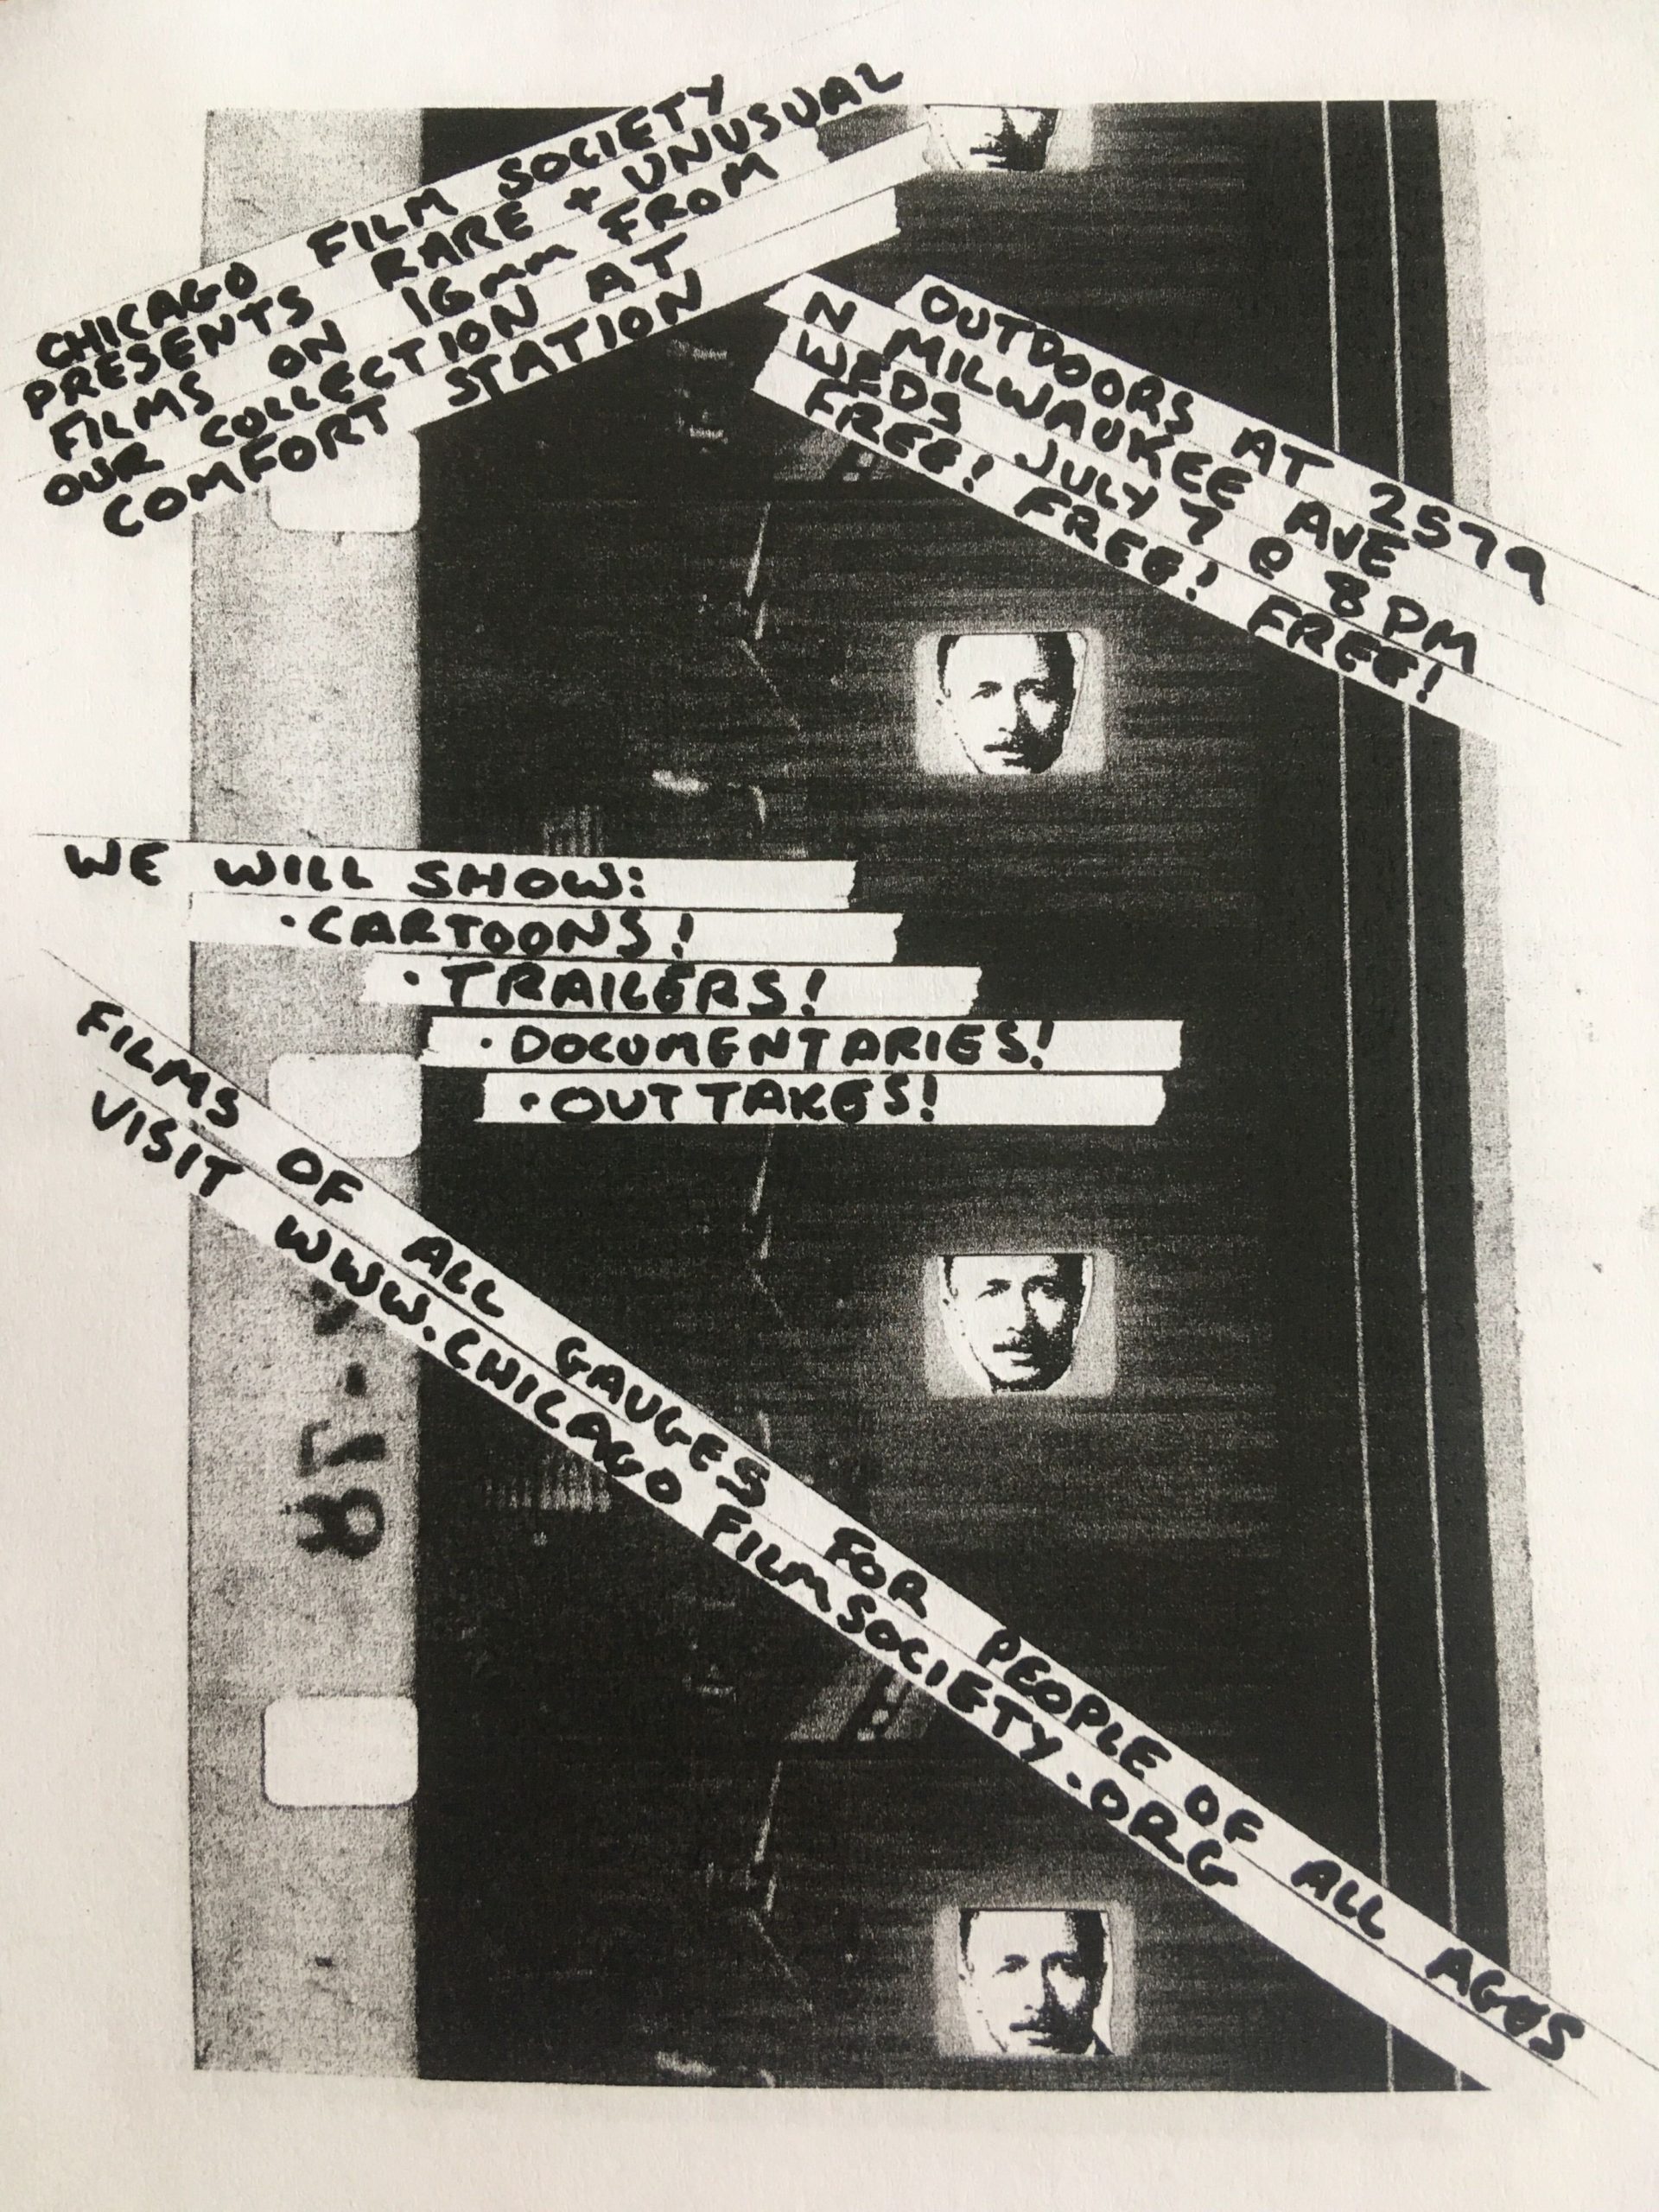 CHICAGO FILM SOCIETY
PRESENTS RARE + UNUSUAL
FILMS ON 16mm FROM
OUR COLLECTION AT
COMFORT STATION
OUTDOORS AT 2579
N MILWAUKEE AVE
WEDS JULY 7 @ 8 PM
FREE! FREE! FREE!
WE WILL SHOW:
·CARTOONS!
·TRAILERS!
·DOCUMENTARIES!
·OUTTAKES!
FILMS OF ALL GAUGES FOR PEOPLE OF ALL AGES
VISIT WWW.CHICAGO FILMSOCIETY.ORG